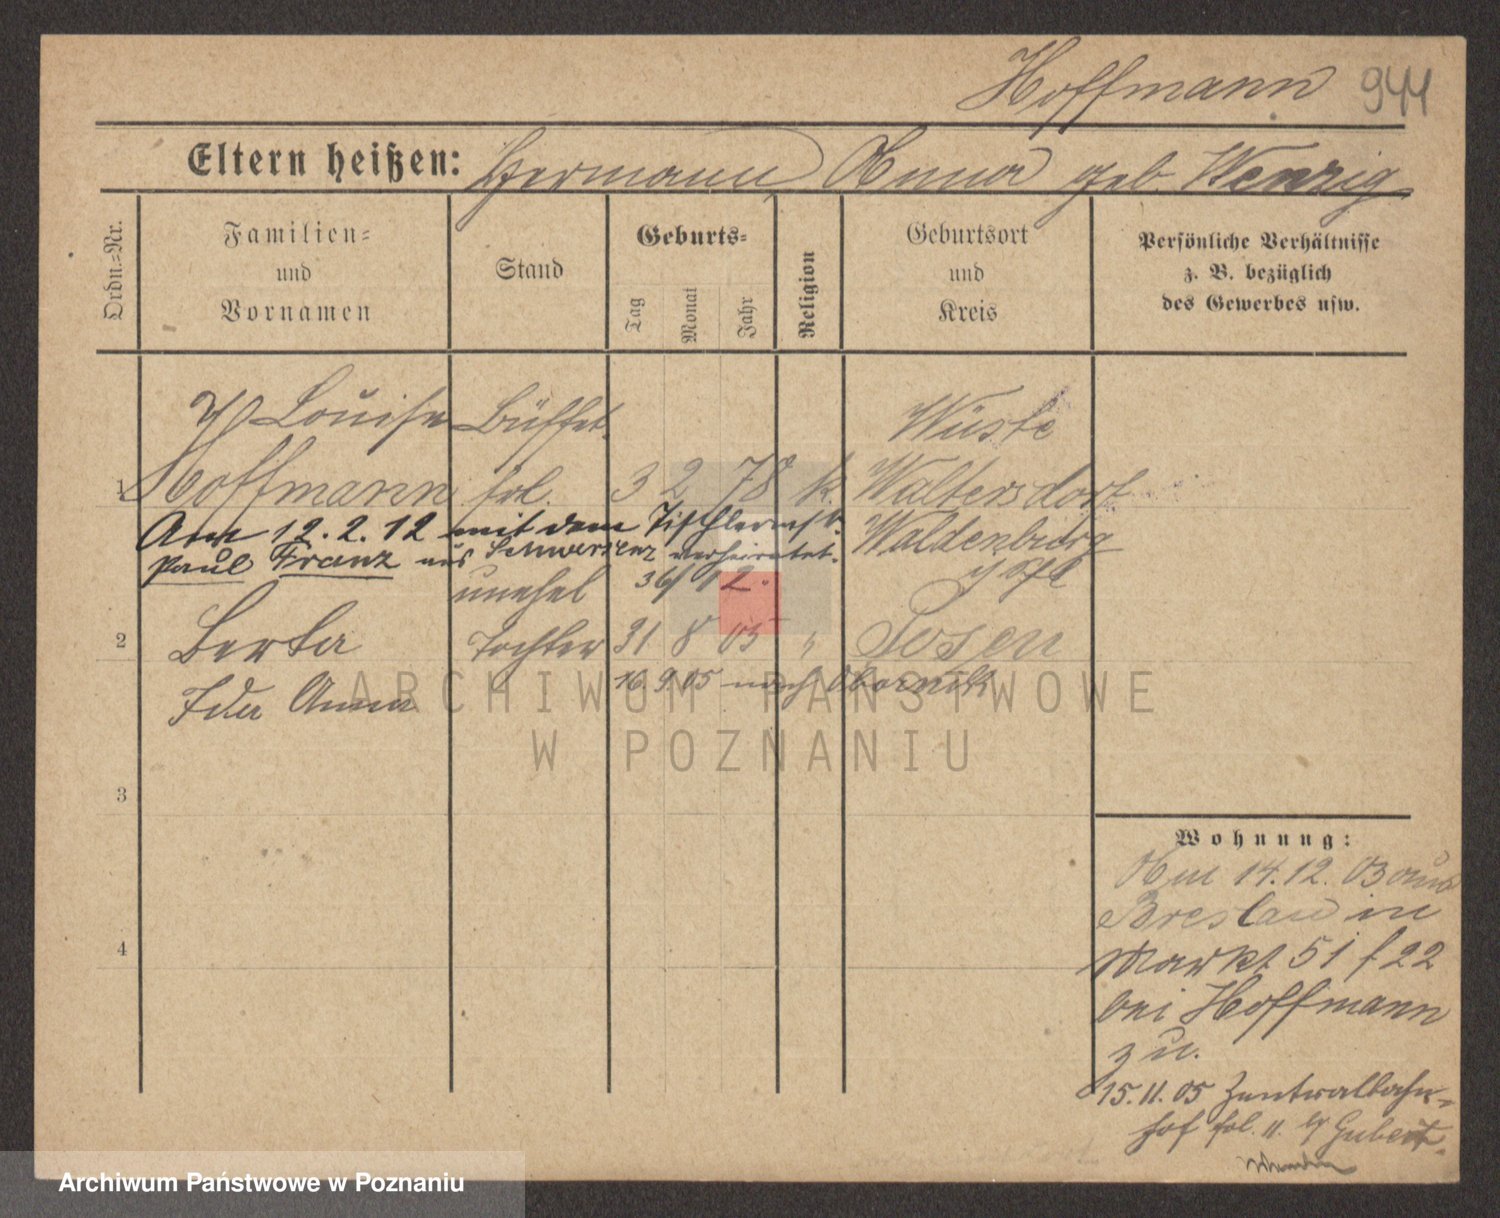 Hoffmann 944
Eltern heißen: Hermann Anna geb. Wenzig
Ordn.=Nr.
Familien=
und
Vornamen
Stand
Geburts=
Tag
Monat
Jahr
Religion
Geburtsort
und
Kreis
Persönliche Verhältnisse
z. B. bezüglich
des Gewerbes usw.
Louise Büffet Wüste
1 Hoffmann frl. 3 2 78 k. Waltersdorf
Am 12.2.12 mit dem Tischlermstr. Waldenburg
Paul Franz aus Schwersenz verheiratet.
unehel 36/12.
2 Berta Tochter 31 8 05 " Posen
Ida Anna 16.9.05 nach Obornik
ARCHIWUM PAŃSTWOWE
W POZNANIU
3
4
Wohnung:
Am 14.12.03 aus
Breslau in
Markt 51 f 22
bei Hoffmann
zu.
15.11.05 Zentralbahn=
hof frl. II.
Archiwum Państwowe w Poznaniu